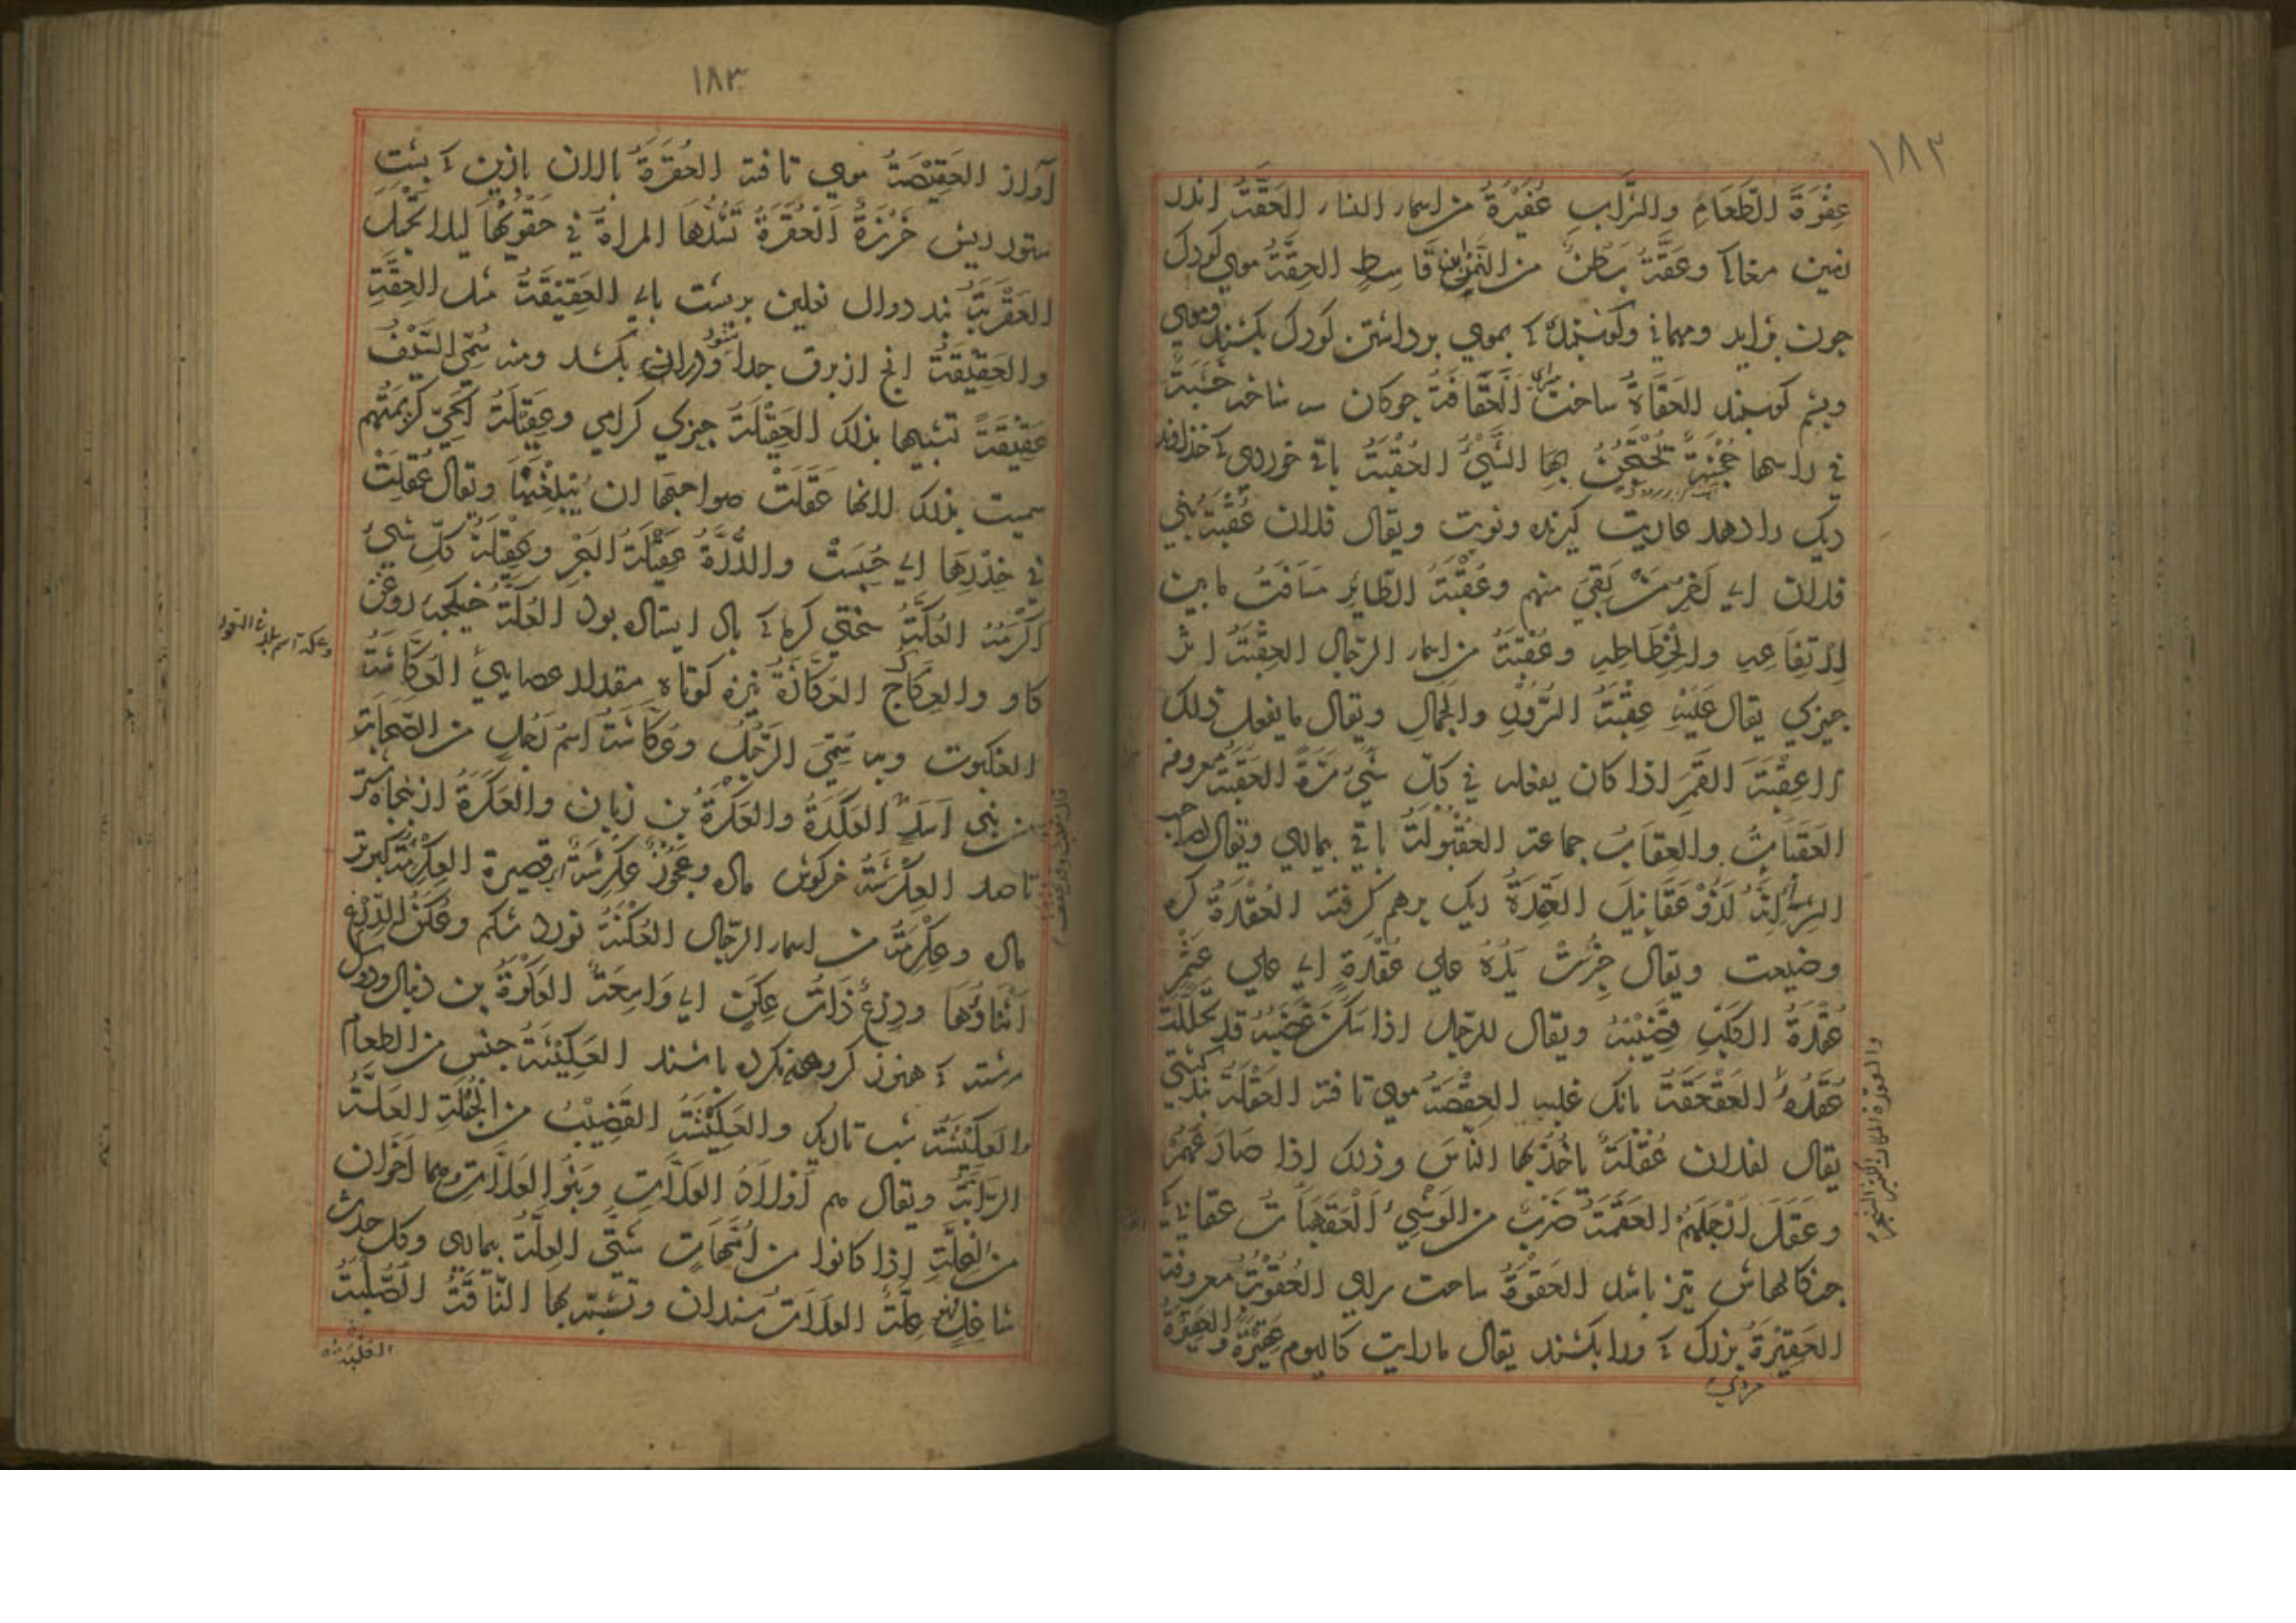 ١٨٢
عِفْرَةَ الطَّعَامِ والشَّرَابِ عُفَيْرَةُ من اسماء النساء العَقَّةُ اندر
زمین مغاك وعَقَّةُ بَطْنٌ من النَّمِرِ بن قَاسِطٍ العِقَّةُ موی كودك
جون بزاید ومهمانی وكوسبندی كه بموی برداشتن كودك بكشند وموی
وبشم كوسبند العَقَاةُ ساخت سرای العُقَّافَةُ جوكان سر ساخته خَشَبَةٌ
في راسها حُجْنَةٌ تُحْتَجَنُ بِهَا الشَّيْءُ العُقْبَةُ باقی خوردی كه خداوند
دیك را دهد عاریت كیرنده ونوبت ویقال فلان عُقْبَةُ بَنِي
فلان اي آخِرُ مَنْ بَقِيَ منهم وعُقْبَةُ الطَّائِرِ مَسَافَةُ ما بین
ارْتِفَاعِهِ وانْحِطَاطِهِ وعُقْبَةُ من اسماء الرجال العِقْبَةُ اثر
جیزی یقال عَلَيْهِ عِقْبَةُ السَّرْوِ والجَمَالِ ویقال ما یفعل ذلك
الا عِقْبَةَ القَمَرِ اذا كان یفعله في كلّ شَهْرٍ مَرَّةً العَقَبَةُ معروفه
العَقَبَاتُ والعِقَابُ جماعة العُقْبُولَةُ باقی بیماری ویقال لصاحب
الشرّ اِنَّهُ لَذُوْ عَقَابِيْلَ العَقِدَةُ دیك برهم كرفته العُقْدَةُ كره
وضیعت ویقال جُبِرَتْ يَدُهُ علي عُقْدَةٍ اي علي عَثْمٍ
عُقْدَةُ الكَلْبِ قَضِيْبُهُ ویقال للرجل اذا سَكَنَ غَضَبُهُ قد تَحَلَّلَتْ
عُقَدُهُ العَقْعَقَةُ بانك غلبه العِقْصَةُ موی تافته العُقْلَةُ بند كشتی
یقال لفلان عُقْلَةٌ يَاخُذُ بها النَّاسَ وذلك اذا صَارَعَهُمْ
وعَقَلَ اَرْجُلَهُمْ العَقْمَةُ ضَرْبٌ من الوَشْيِ العَقَنْبَاةُ عقابی كه
جنكالهاش تیز باشد العَقْوَةُ ساحت سرای العُقُوْبَةُ معروفة
العَقِيْرَةُ بزرك كه ورا بكشند یقال ما رایت كالیوم عَقِيْرَةً والعَقِيْرَةُ
١٨٣
آواز العَقِيْصَةُ موی تافته العُقَرَةُ بالان ازین كه بشت
ستور ریش خَرَزَةُ الْعُقَرَةُ تَشُدُّهَا المراةُ في حَقْوَيْهَا لیلا تحْبَلَ
العَقْرَبَةُ بند دوال نعلین بربشت بای العَقِيْقَةُ مثل العِقَّةِ
والعَقِيْقَةُ انج از برق جدا شود ودران بكشد ومنه سُمِّيَ السَّيْفُ
عَقِيْقَةً تشبیها بذلك العَقِيْلَةُ جیزی كرامی وعَقِيْلَةُ الحَيِّ كَرِيْمَتُهُم
سمیت بذلك لانها عَقَلَتْ صواحبها ان يَبْلُغْنَهَا ویقال عُقِلَتْ
في خِدْرِهَا اي حُبِسَتْ والدُّرَّةُ عَقِيْلَةُ البَحْرِ وعَقِيْلَةُ كلِّ شَيْءٍ
اَكْرَمُهُ العُكَّةُ سختی كرما كه باد ایستاده بود العُكَّةُ خیكجه روغن
كاو والعِكَاكُ العُكَّازَةُ نیزه كوتاه مقدار عصایی العُكَّاشَةُ
العنكبوت وبه سُمِّيَ الرَّجُلُ وعُكَّاشَةُ اسْمُ رَجُلٍ من الصَّحَابَةِ
من بَنِي اَسَدٍ العَكَدَةُ والعَكَرَةُ بن زبان والعَكَرَةُ از بنجاه شتر
تا صد العِكْرِشَةُ خركوش ماده وعَجُوْزٌ عِكْرِشَةٌ اي قصیرة العِكْرِمَةُ كبوتر
ماده وعِكْرِمَةُ من اسماء الرّجال العُكْنَةُ نورد شكم وعُكَنُ الدِّرْعِ
اَثْنَاؤُهَا ودِرْعٌ ذَاتُ عُكَنٍ اي وَاسِعَةٌ العَكْوَةُ بن دنبال ودوك
رشته كه هنوز كروهه نكرده باشند العَكِيْسَةُ جنس من الطعام
والعَكِيْسَةُ شب تاریك والعَكِيْسَةُ القَضِيْبُ من الحُبْلَةِ العَلَّةُ
الرَّابَّةُ ویقال هم اَوْلَادُ العَلَّاتِ وبَنُو العَلَّاتِ وهما اَخَوَانِ
من العَلَّةِ اذا كانوا من اُمَّهَاتٍ شَتَّى العِلَّةُ بیماری وكل حدث
شاغِلٍ فهو عِلَّةٌ العَلَاةُ سندان وتُشَبَّهُ بها النَّاقَةُ الصُّلْبَةُ